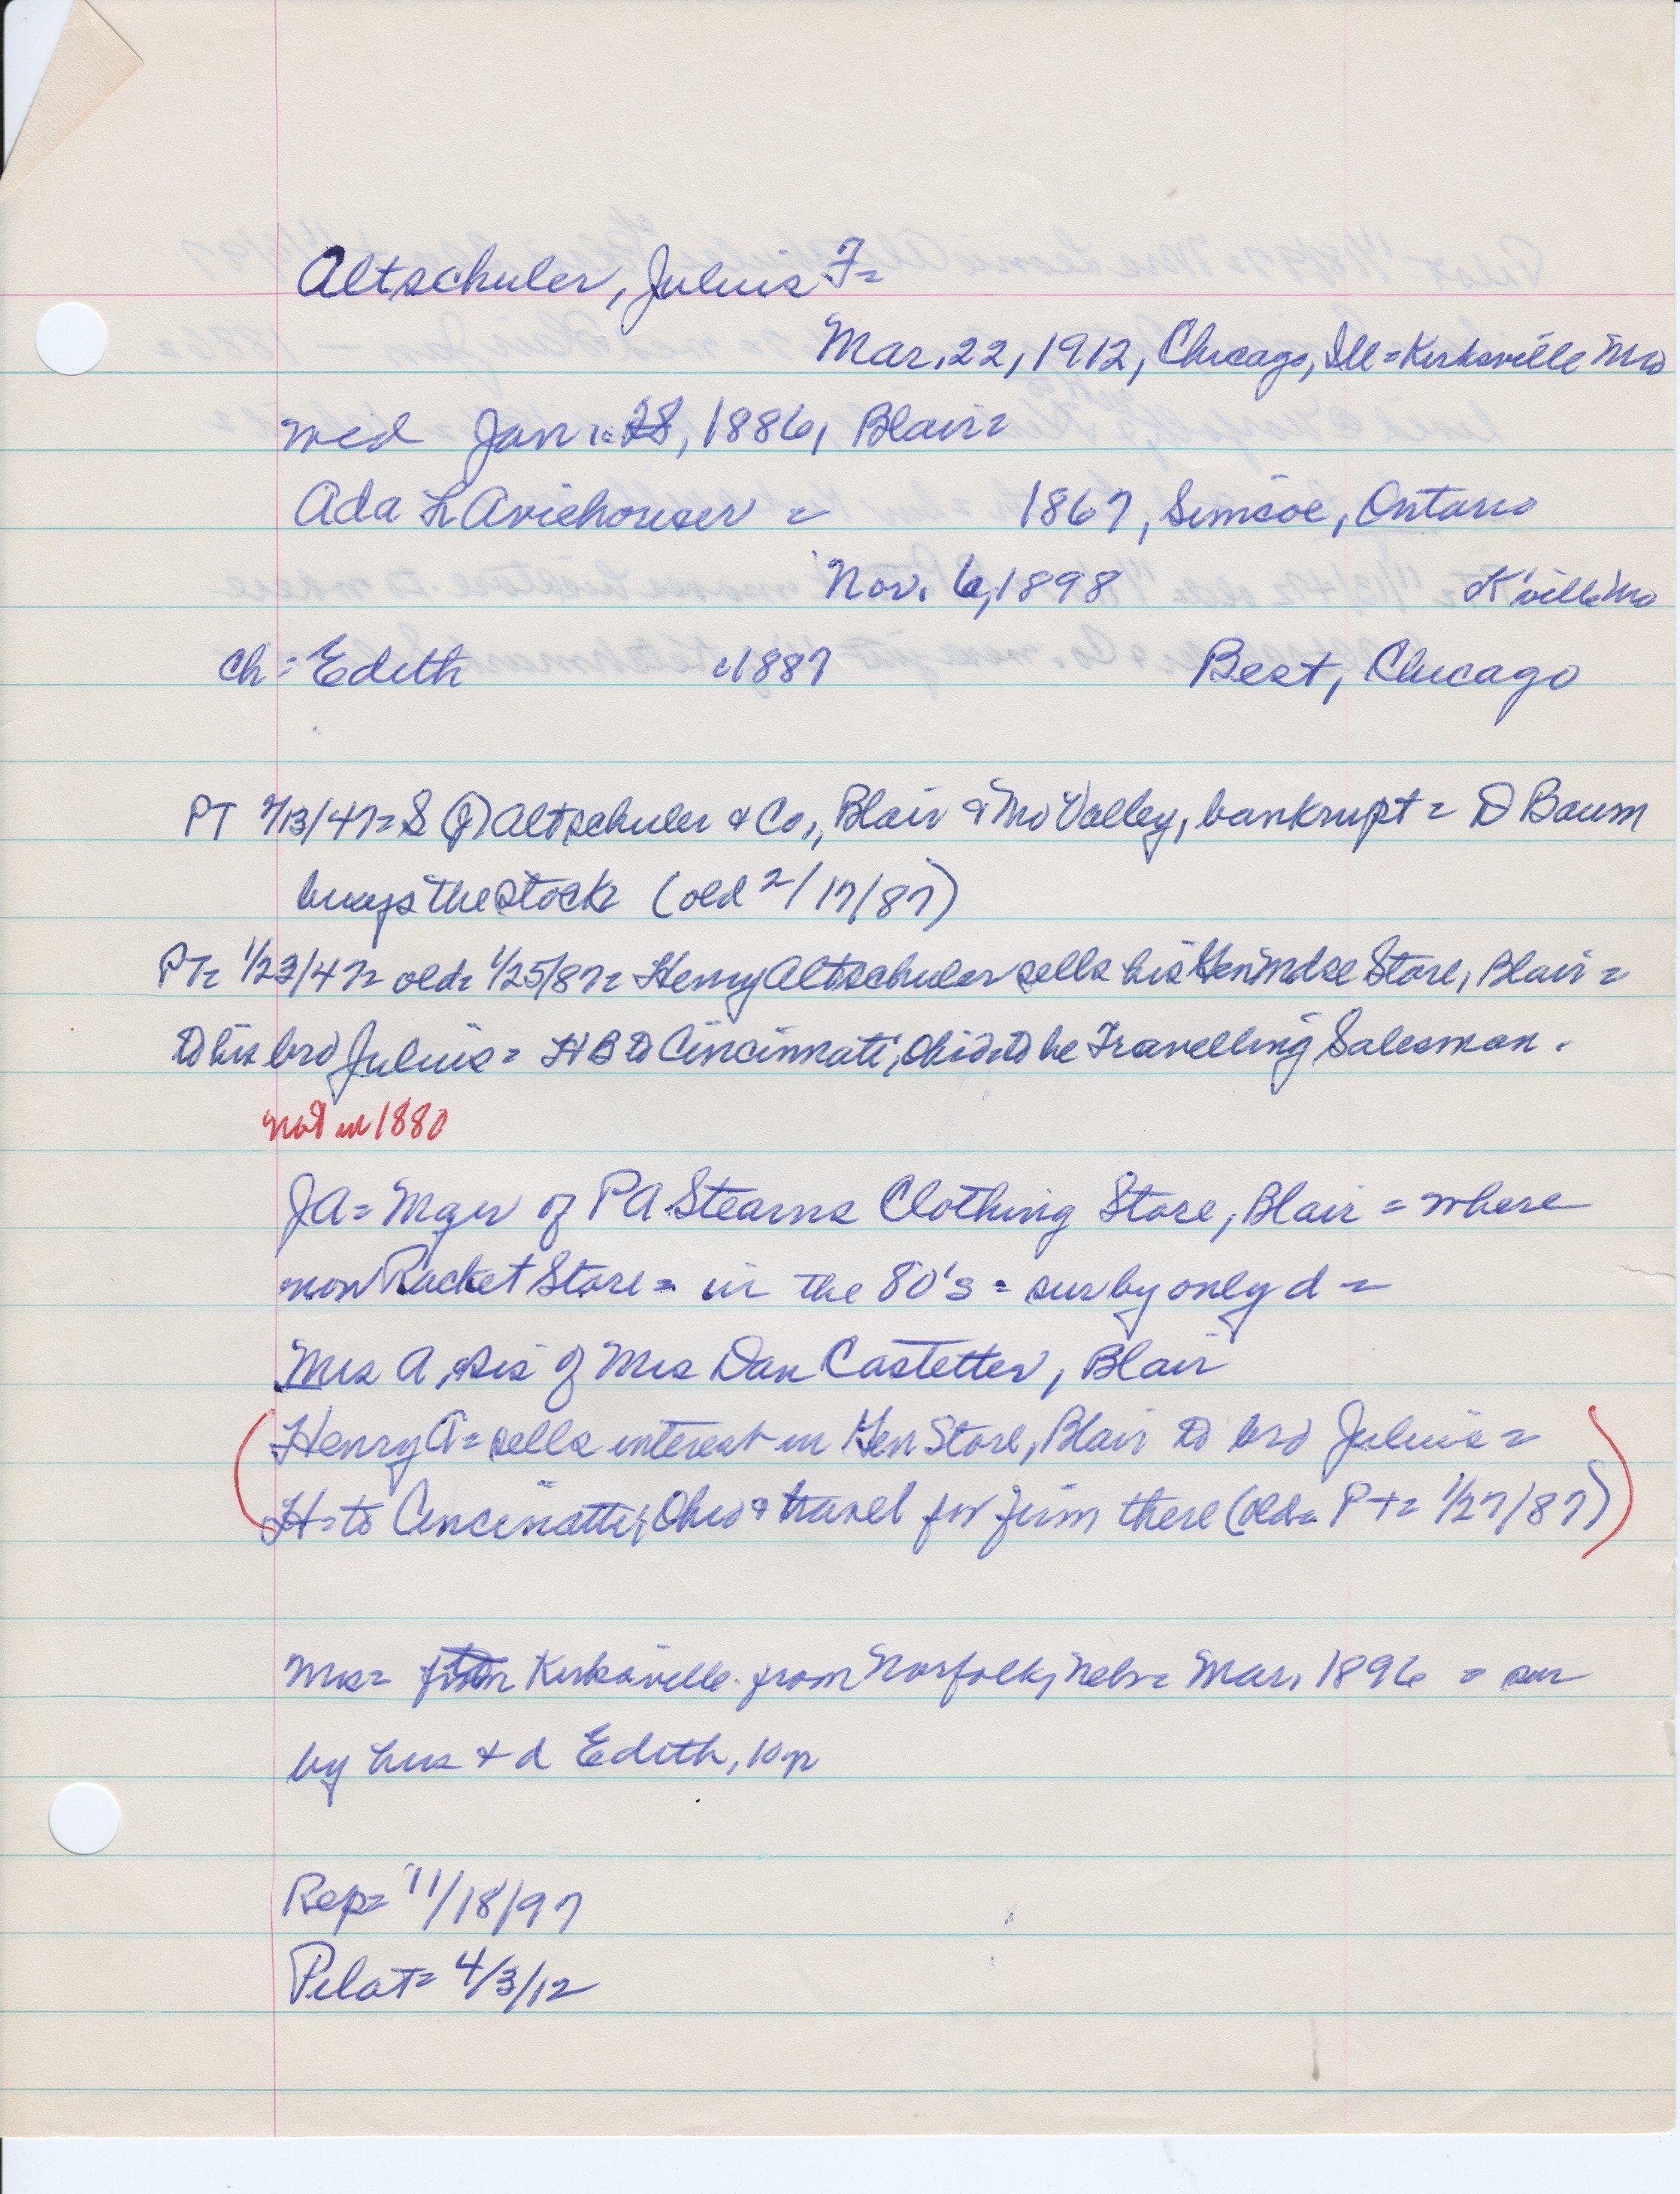 Altschuler, Julius F=
Mar. 22, 1912, Chicago, Ill = Kirksville Mo
med Jan. 28, 1886, Blair=
Ada L Arichouser = 1867, Simcoe, Ontario
Nov. 6, 1898 K'ville Mo
Ch: Edith c1887 Best, Chicago
PT 2/13/47= S (J) Altschuler & Co., Blair & Mo Valley, bankrupt = D Baum
buys the stock (old 2/17/87)
PT= 1/23/47= old= 1/25/87= Henry Altschuler sells his Gen mdse Store, Blair =
to his bro Julius = HB to Cincinnati, Ohio to be Travelling Salesman.
not in 1880
JA= Mgr of PA Stearns Clothing Store, Blair = where
now Racket Store = in the 80's = sur by only d =
Mrs A, sis of Mrs Dan Castetter, Blair
(Henry A= sells interest in Gen Store, Blair to bro Julius =
H= to Cincinatti, Ohio & travel for firm there (old= PT= 1/27/87)
Mrs= Kirksville from Norfolk, Nebr= Mar. 1896 = sur
by hus + d Edith, 10 y
Rep= 11/18/97
Pilot= 4/3/12